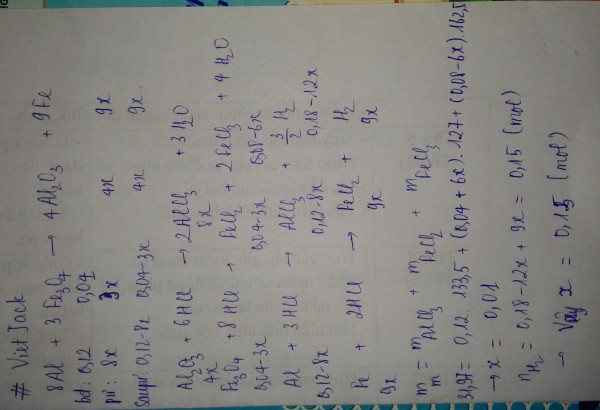 # VietJack
8Al + 3Fe3O4 → 4Al2O3 + 9Fe
bđ: 0,12 0,04
pư: 8x 3x 4x 9x
Saupư: 0,12-8x 0,04-3x 4x 9x.
Al2O3 + 6HCl → 2AlCl3 + 3H2O
4x 8x
Fe3O4 + 8HCl → FeCl2 + 2FeCl3 + 4H2O
0,04-3x 0,04-3x 0,08-6x
Al + 3HCl → AlCl3 + 3/2 H2
0,12-8x 0,12-8x 0,18-12x
+ 2HCl → FeCl2 + H2
9x 9x 9x
m = mAlCl3 + mFeCl2 + mFeCl3
31,97 = 0,12. 133,5 + (0,04 + 6x). 127 + (0,08-6x).162,5
→ x = 0,01
nH2 = 0,18-12x + 9x = 0,15 (mol)
→ Vậy x = 0,15 (mol)